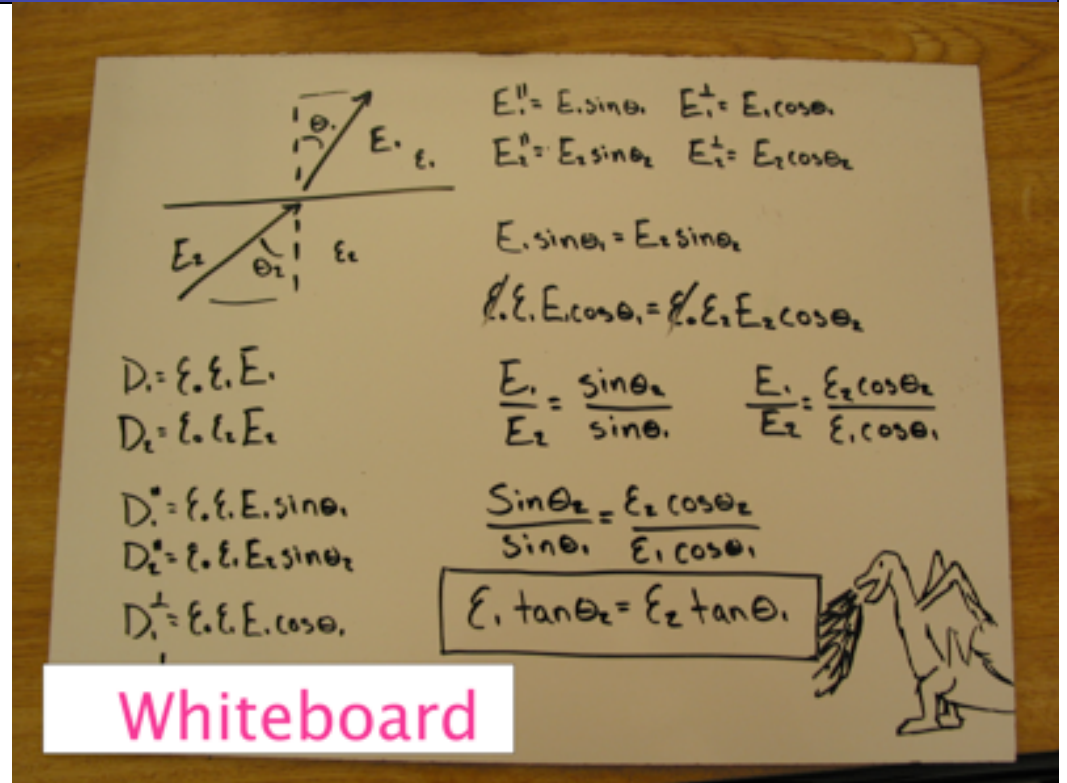 θ₁
E₁
ε₁
E₂
θ₂
ε₂
D₁ = ε₀ε₁E₁
D₂ = ε₀ε₂E₂
D₁" = ε₀ε₁E₁sinθ₁
D₂" = ε₀ε₂E₂sinθ₂
D₁⊥ = ε₀ε₁E₁cosθ₁
E₁" = E₁sinθ₁ E₁⊥ = E₁cosθ₁
E₂" = E₂sinθ₂ E₂⊥ = E₂cosθ₂
E₁sinθ₁ = E₂sinθ₂
ε₀ε₁E₁cosθ₁ = ε₀ε₂E₂cosθ₂
E₁/E₂ = sinθ₂/sinθ₁ E₁/E₂ = ε₂cosθ₂/ε₁cosθ₁
Sinθ₂/sinθ₁ = ε₂cosθ₂/ε₁cosθ₁
ε₁tanθ₂ = ε₂tanθ₁
Whiteboard